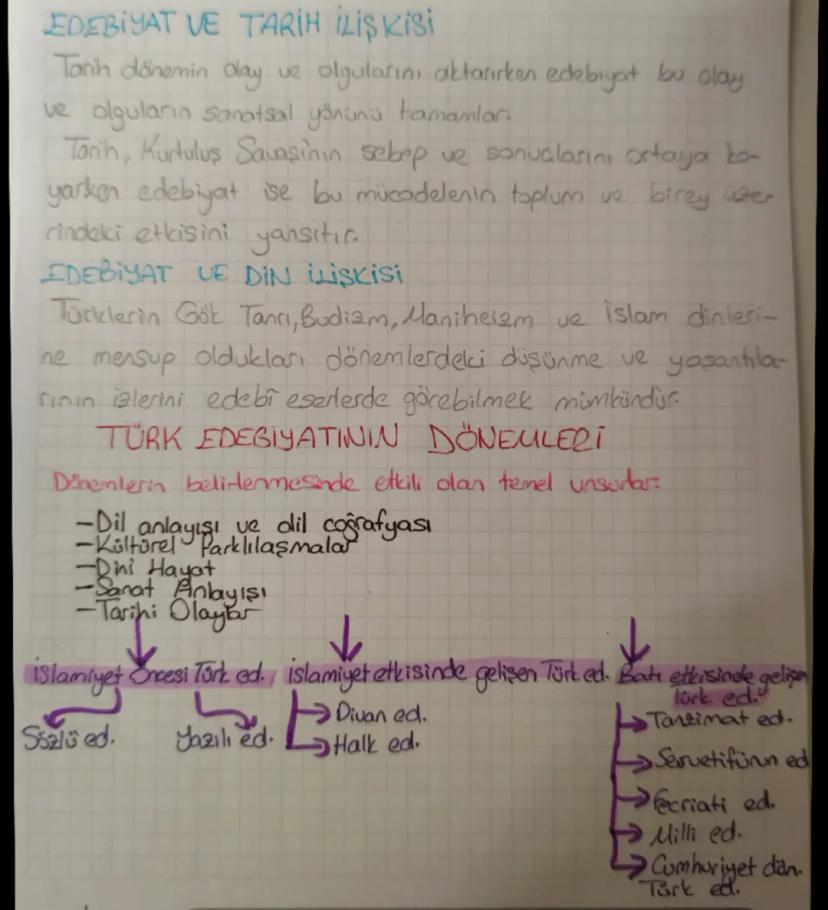 EDEBİYAT VE TARİH İLİŞKİSİ
Tarih dönemin olay ve olgularını aktarırken edebiyat bu olay
ve olguların sanatsal yönünü tamamlar.
Tarih, Kurtuluş Savaşının sebep ve sonuçlarını ortaya ko-
yarken edebiyat ise bu mücadelenin toplum ve birey üze-
rindeki etkisini yansıtır.
EDEBİYAT VE DİN İLİŞKİSİ
Türklerin Gök Tanrı, Budizm, Maniheizm ve İslam dinleri-
ne mensup oldukları dönemlerdeki düşünme ve yaşantıla-
rının izlerini edebî eserlerde görebilmek mümkündür.
TÜRK EDEBİYATININ DÖNEMLERİ
Dönemlerin belirlenmesinde etkili olan temel unsurlar:
-Dil anlayışı ve dil coğrafyası
-Kültürel Farklılaşmalar
-Dini Hayat
-Sanat Anlayışı
-Tarihi Olaylar
İslamiyet Öncesi Türk ed. İslamiyet etkisinde gelişen Türk ed. Batı etkisinde gelişen
Türk ed.
Sözlü ed. Yazılı ed.
Divan ed.
Halk ed.
Tanzimat ed.
Servetifünun ed
Fecriati ed.
Milli ed.
Cumhuriyet dön.
Türk ed.